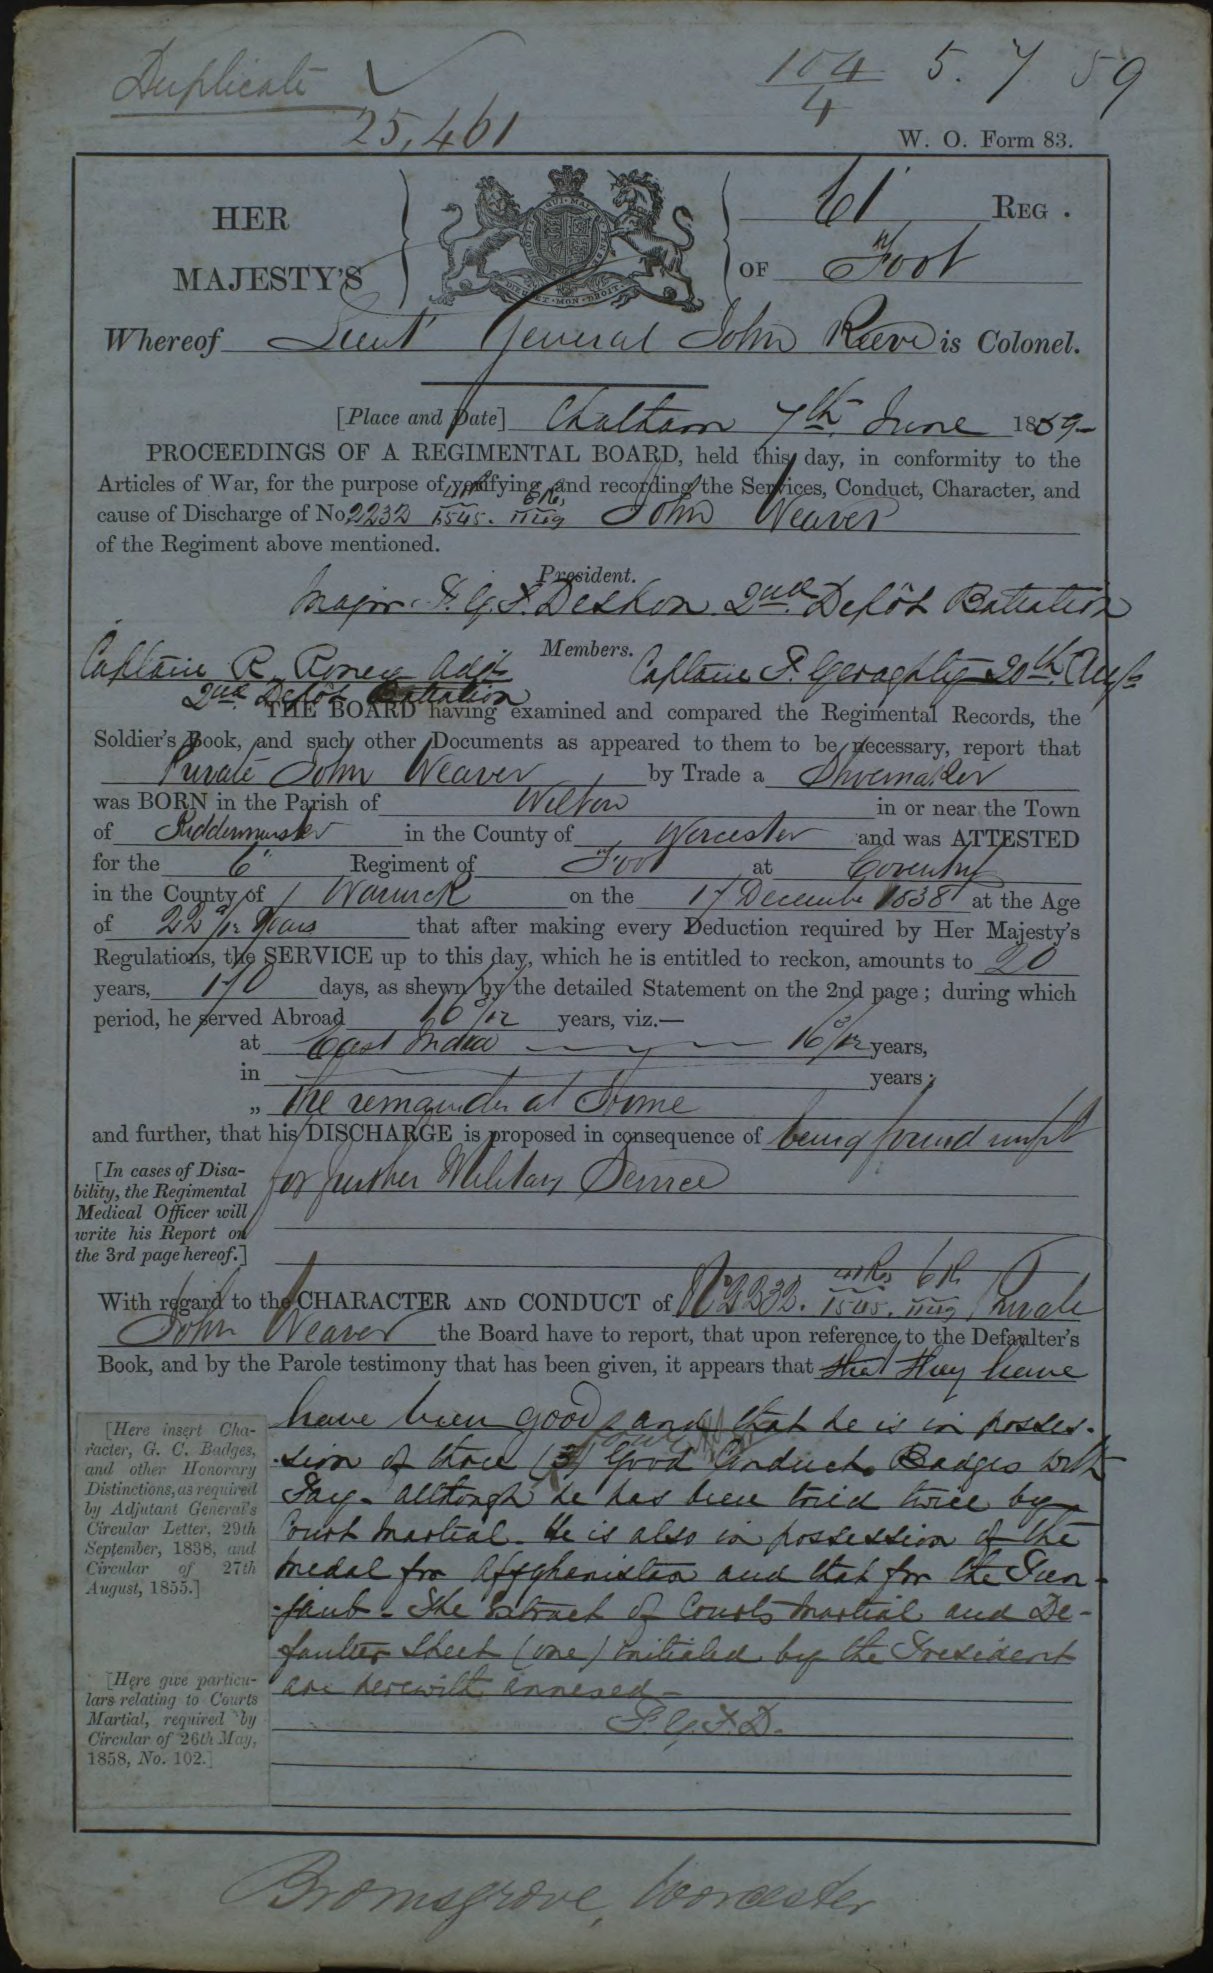 Duplicate
104/4 5. 7 59
25,461
W. O. Form 83.
HER
MAJESTY'S
61 REG .
OF Foot
Whereof Lieut General John Reeve is Colonel.
[Place and Date] Chatham 7th June 1859-
PROCEEDINGS OF A REGIMENTAL BOARD, held this day, in conformity to the
Articles of War, for the purpose of verifying and recording the Services, Conduct, Character, and
cause of Discharge of No. 2232 1545. 1169 John Weaver
of the Regiment above mentioned.
President.
Major F.G.T. Deshon 2nd Depôt Battalion
Members.
Captain R. Adjt Captain T. Geraghty 20th Regt
2nd Depôt Battalion
THE BOARD having examined and compared the Regimental Records, the
Soldier's Book, and such other Documents as appeared to them to be necessary, report that
Private John Weaver by Trade a Shoemaker
was BORN in the Parish of Wilton in or near the Town
of Kidderminster in the County of Worcester and was ATTESTED
for the 6 Regiment of Foot at Coventry
in the County of Warwick on the 17 December 1838 at the Age
of 22 /12 Years that after making every Deduction required by Her Majesty's
Regulations, the SERVICE up to this day, which he is entitled to reckon, amounts to 20
years, 170 days, as shewn by the detailed Statement on the 2nd page ; during which
period, he served Abroad 16 /12 years, viz.—
at East India 16 /12 years,
in years ;
„ The remainder at Home
and further, that his DISCHARGE is proposed in consequence of being found unfit
for further Military Service
[In cases of Disa-
bility, the Regimental
Medical Officer will
write his Report on
the 3rd page hereof.]
With regard to the CHARACTER AND CONDUCT of No 2232. 1545. 1169 Private
John Weaver the Board have to report, that upon reference to the Defaulter's
Book, and by the Parole testimony that has been given, it appears that that they have
have been good and that he is in posses-
-sion of three (3) Good Conduct Badges with
Pay - although he has been tried twice by
Court Martial. He is also in possession of the
medal for Affghanistan and that for the Pun-
-jaub - The Extract of Courts Martial and De-
faulter Sheet (one) initialed by the President
are herewith annexed -
F.G.T.D.
[Here insert Cha-
racter, G. C. Badges,
and other Honorary
Distinctions, as required
by Adjutant General's
Circular Letter, 29th
September, 1838, and
Circular of 27th
August, 1855.]
[Here give particu-
lars relating to Courts
Martial, required by
Circular of 26th May,
1858, No. 102.]
Bromsgrove, Worcester